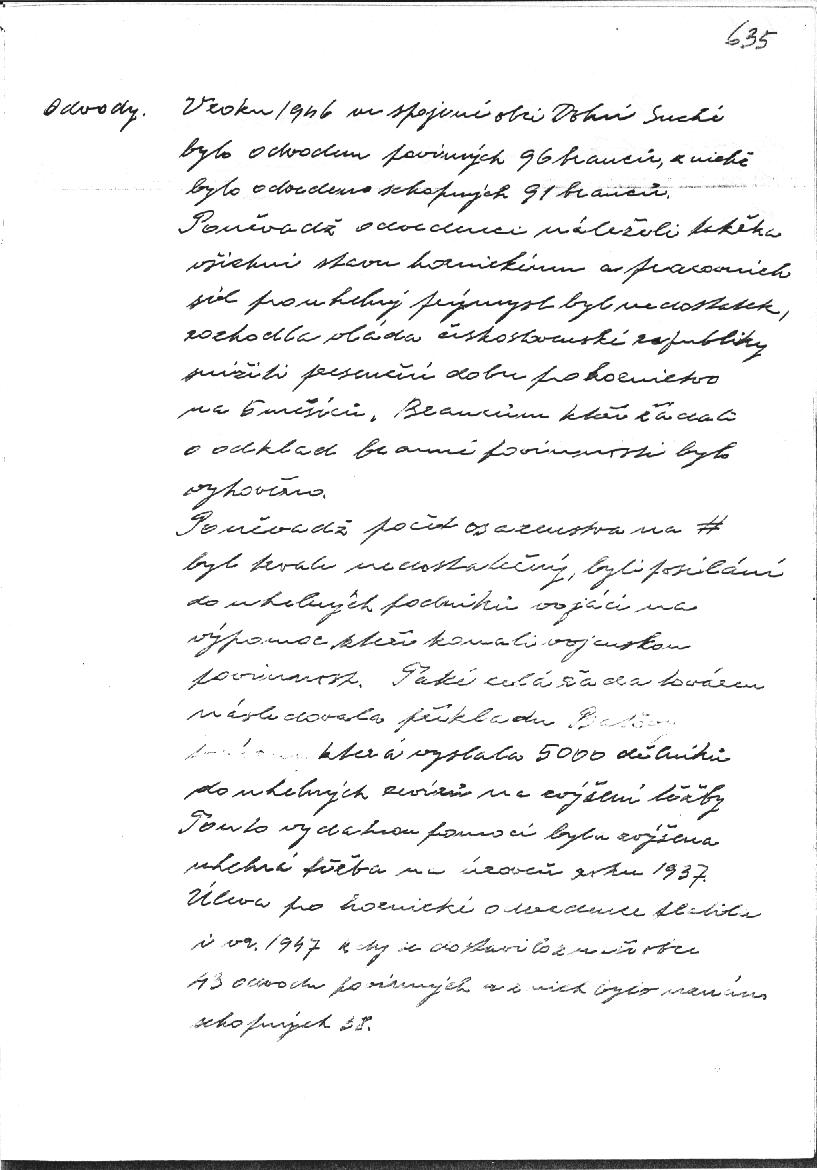 635
Odvody. V roku 1946 ve spojené obci Dolní Suché
bylo odvodem povinných 96 branců, z nichž
bylo odvedeno schopných 91 branců.
Poněvadž odvedenci náleželi takřka
všichni stavu hornickému a pracovních
sil pro uhelný průmysl byl nedostatek,
rozhodla vláda československé republiky
snížiti presenční dobu pro hornictvo
na 5 měsíců. Brancům kteří žádali
o odklad branné povinnosti bylo
vyhověno.
Poněvadž počet osazenstva na #
byl trvale nedostatečný, byli posíláni
do uhelných podniků vojáci na
výpomoc, kteří konali vojenskou
povinnost. Také celá řada továren
následovala příkladu Baťovy
která vyslala 5000 dělníků
do uhelných revírů na zvýšení těžby
Touto vydatnou pomocí byla zvýšena
uhelná těžba na úroveň roku 1937.
Úleva pro hornické odvedence platila
i v r. 1947 kdy se dostavilo z naší obce
43 odvodu povinných a z nich bylo uznáno
schopných 38.